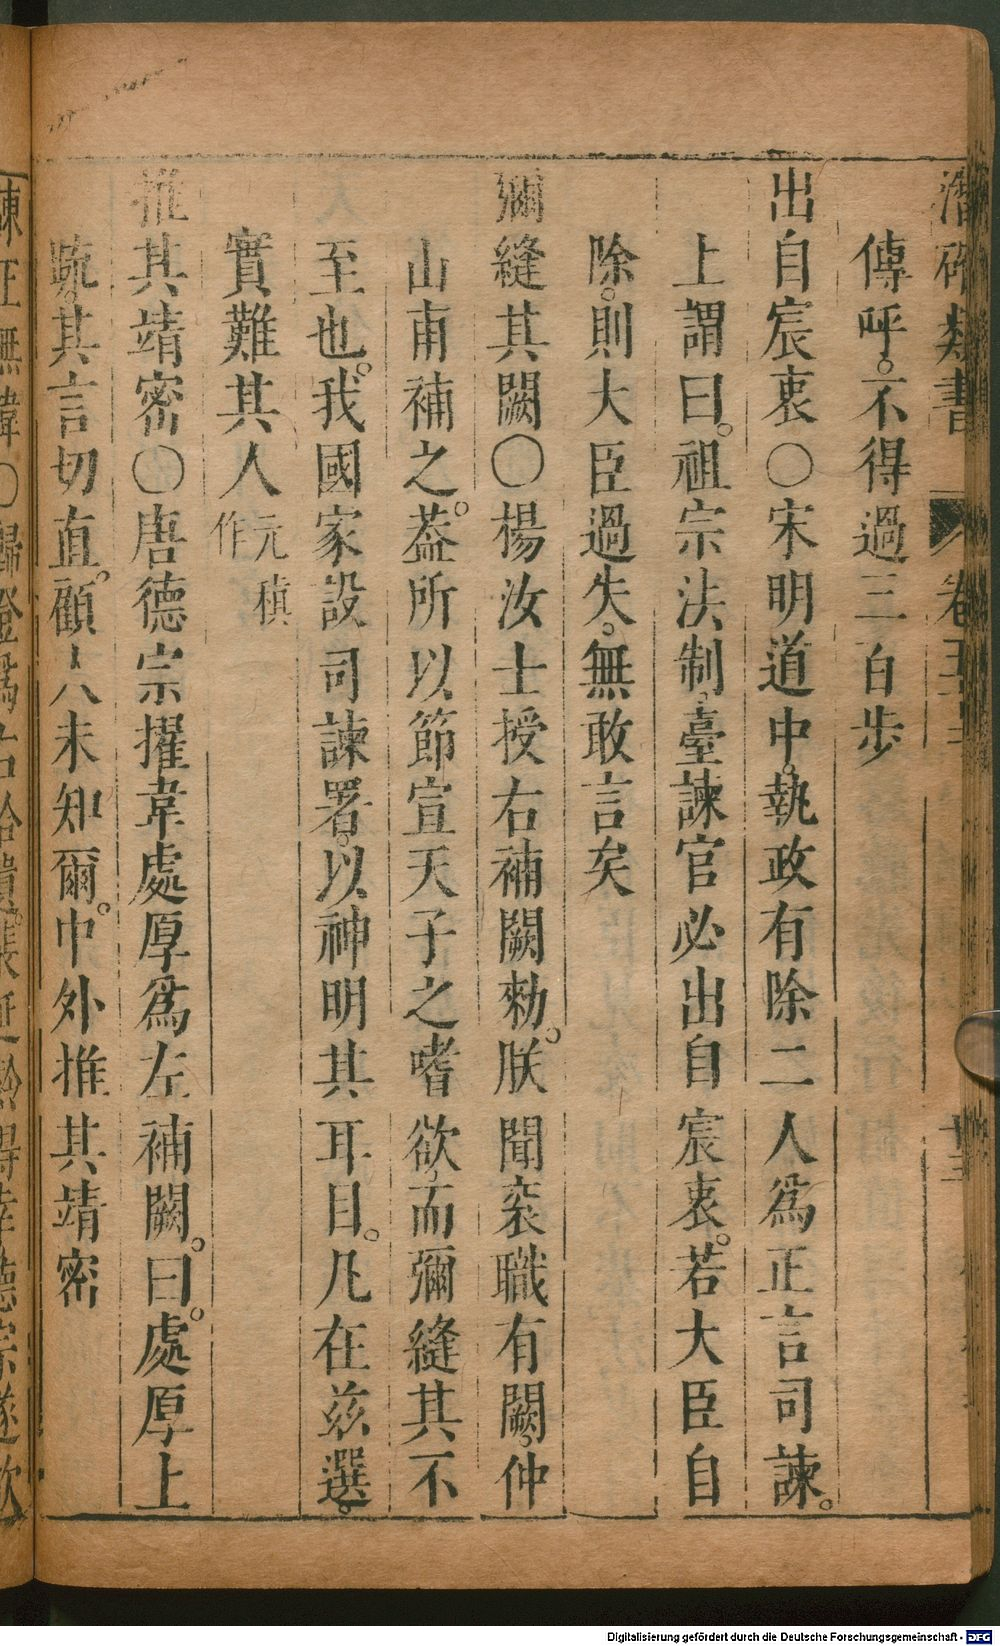 潛確類書 卷五十三 十三
傳呼。不得過三百步
出自宸衷○宋明道中。執政有除二人爲正言司諫。
上謂曰。祖宗法制。臺諫官必出自宸衷。若大臣自
除。則大臣過失。無敢言矣
彌縫其闕○楊汝士授右補闕勑。朕聞衮職有闕。仲
山甫補之。葢所以節宣天子之嗜欲。而彌縫其不
至也。我國家設司諫署。以神明其耳目。凡在兹選。
實難其人 元稹作
推其靖密○唐德宗擢韋處厚爲左補闕。曰。處厚上
疏。其言切直。顧人未知爾。中外推其靖密
諫正無諱○歸登爲右拾遺。裴延齡得幸德宗遂欲
Digitalisierung gefördert durch die Deutsche Forschungsgemeinschaft - DFG